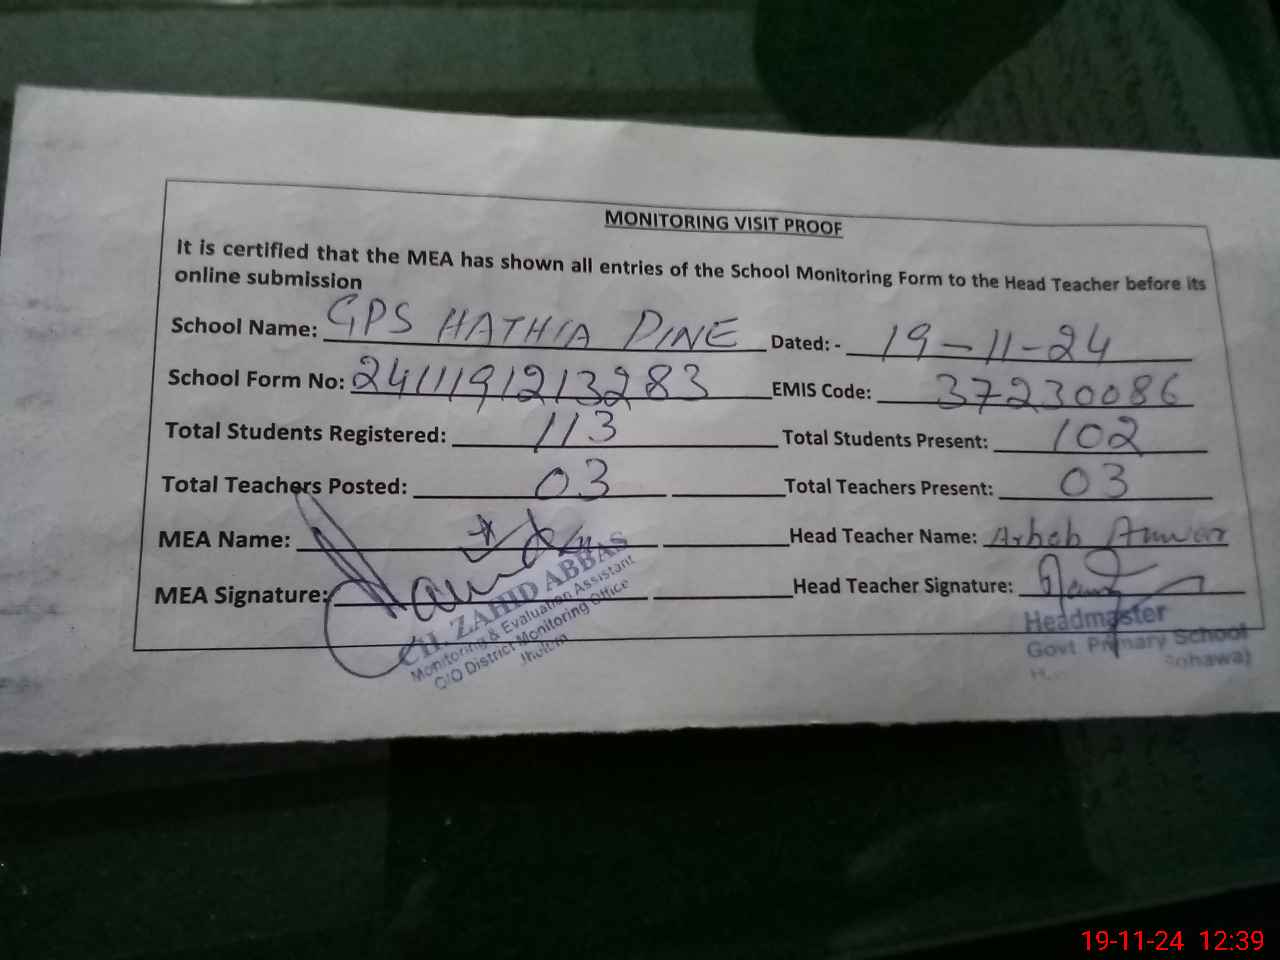 MONITORING VISIT PROOF
It is certified that the MEA has shown all entries of the School Monitoring Form to the Head Teacher before its
online submission
School Name: GPS HATHIA DINE Dated: - 19-11-24
School Form No: 2411191213283 EMIS Code: 37230086
Total Students Registered: 113 Total Students Present: 102
Total Teachers Posted: 03 Total Teachers Present: 03
MEA Name: Head Teacher Name: Anwar
MEA Signature: Head Teacher Signature:
CH. ZAHID ABBAS
Monitoring & Evaluation Assistant
O/O District Monitoring Office
Jhelum
Headmaster
Govt. Primary School
Sohawa)
19-11-24 12:39